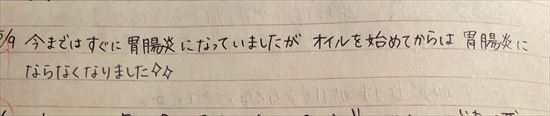 5/9 今まではすぐに胃腸炎になっていましたが オイルを始めてからは 胃腸炎に
ならなくなりました✧✧